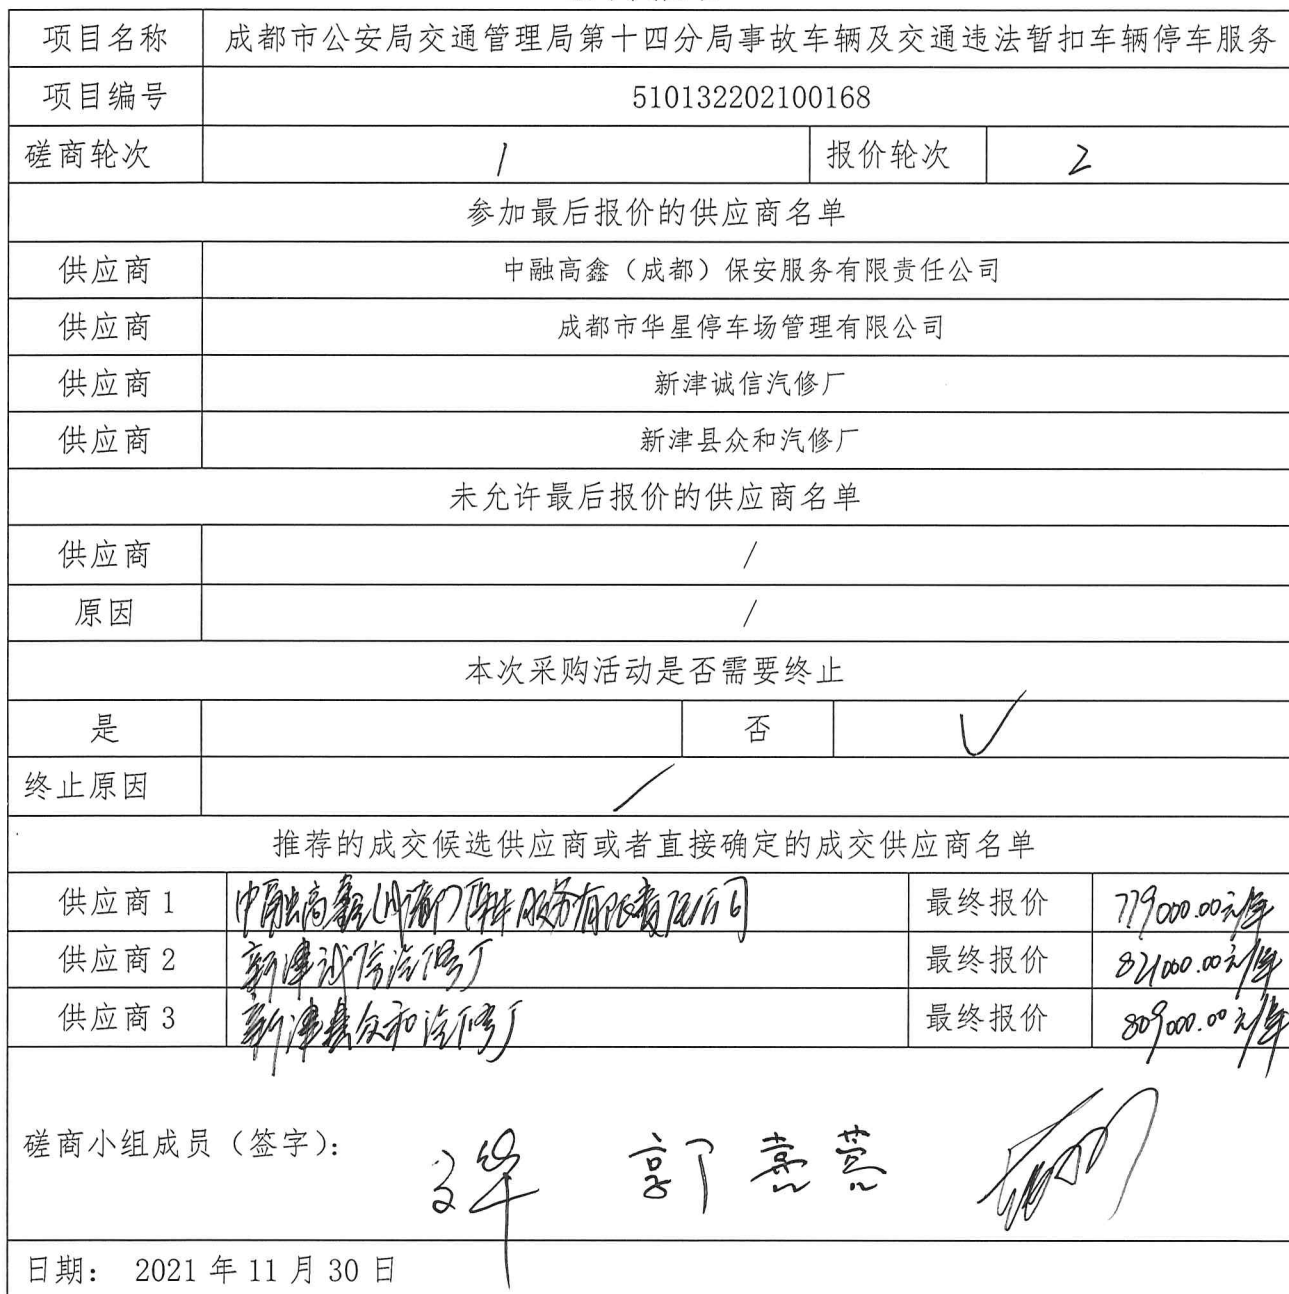 项目名称 成都市公安局交通管理局第十四分局事故车辆及交通违法暂扣车辆停车服务
项目编号 510132202100168
磋商轮次 1 报价轮次 2
参加最后报价的供应商名单
供应商 中融高鑫（成都）保安服务有限责任公司
供应商 成都市华星停车场管理有限公司
供应商 新津诚信汽修厂
供应商 新津县众和汽修厂
未允许最后报价的供应商名单
供应商 /
原因 /
本次采购活动是否需要终止
是 否 ✓
终止原因 /
推荐的成交候选供应商或者直接确定的成交供应商名单
供应商 1 中融高鑫(成都)保安服务有限责任公司 最终报价 779000.00元/年
供应商 2 新津诚信汽修厂 最终报价 821000.00元/年
供应商 3 新津县众和汽修厂 最终报价 809000.00元/年
磋商小组成员（签字）：
日期： 2021 年 11 月 30 日